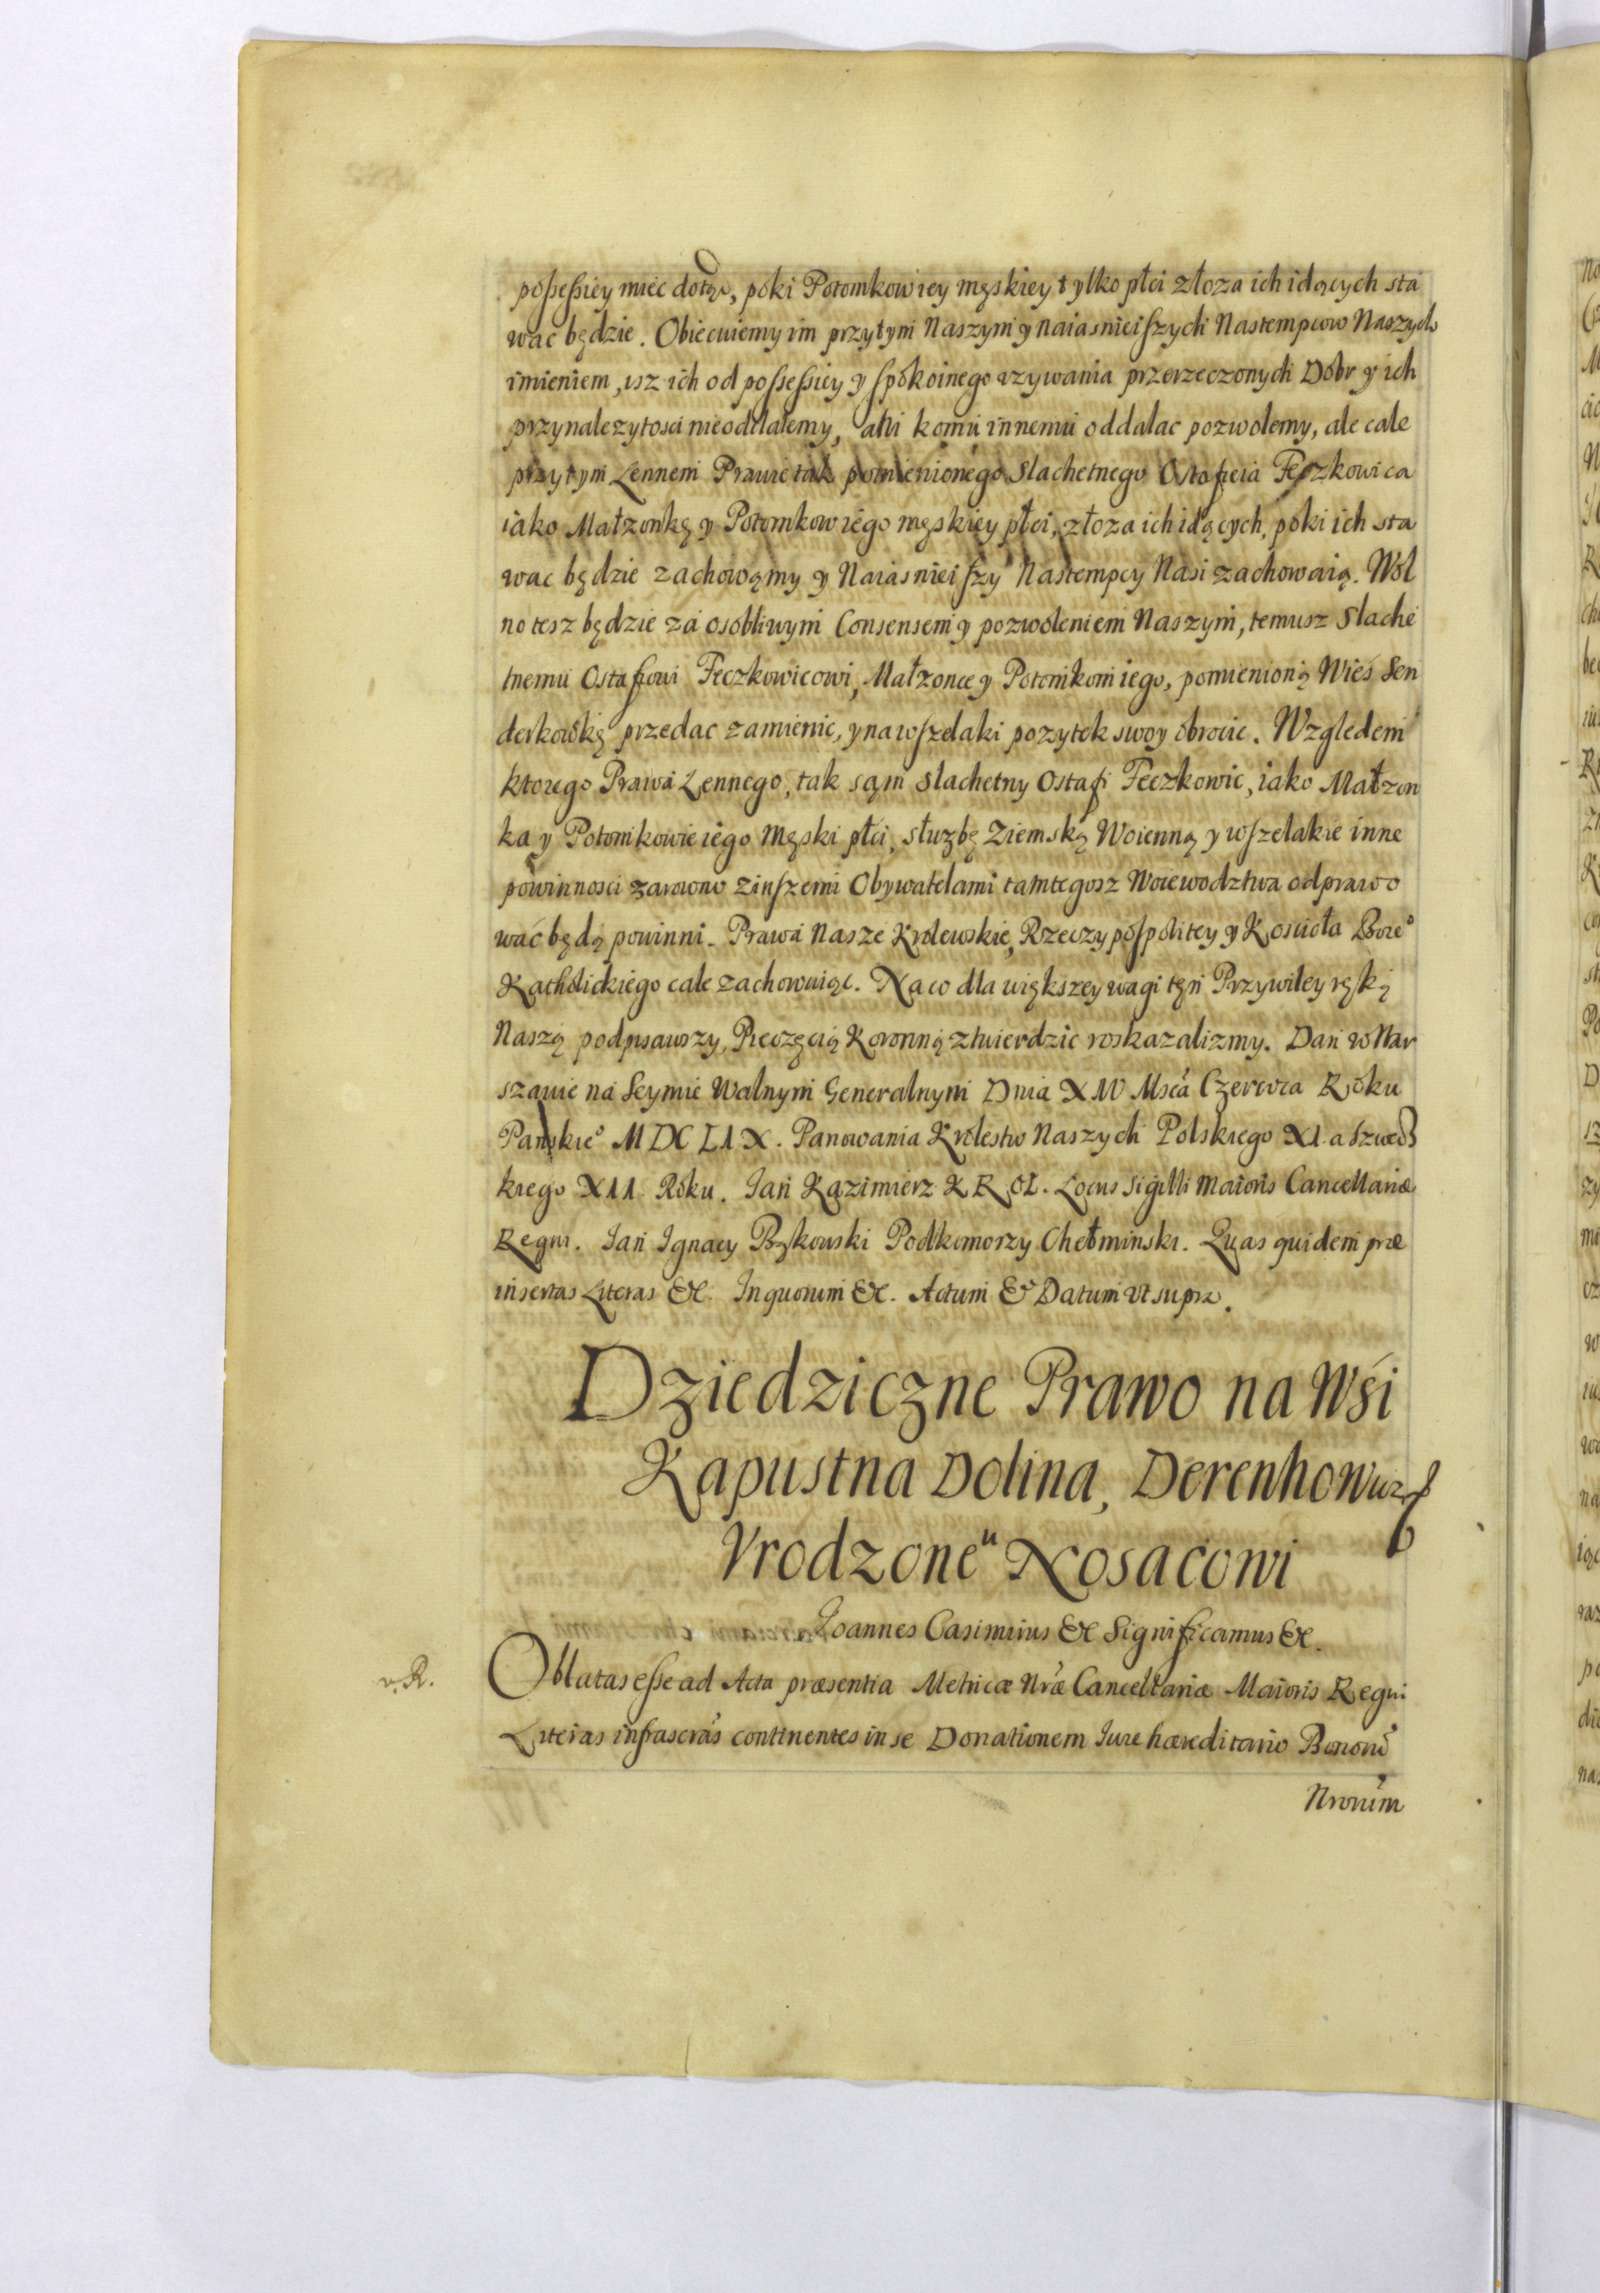 possessiey miec dotąd, poki Potomkow iey męskiey tylko płci złoza ich idących sta
wac będzie. Obiecuiemy im przytym Naszym y naiasnieiszych Nastempcow Naszych
imieniem, isz ich od possessiey y spokoinego vzywania przerzeczonych Dobr y ich
przynalezytosci nieoddalemy, ani komu innemu oddalac pozwolemy, ale cale
przy tym Lennem Prawie tak pomienionego Slachetnego Ostafieia Feczkowica
iako Małzonkę y Potomkow iego męskiey płci, złoza ich idących, poki ich sta
wac będzie zachowamy y Naiasnieiszy Nastempcy Nasi zachowaią. Wol
no tesz będzie za osobliwym Consensem y pozwoleniem Naszym, temusz Slache
tnemu Ostafiowi Feczkowicowi, Małzonce y Potomkom iego, pomienioną Wieś Sen
derkowkę przedac zamienic, y na wszelaki pozytek swoy obrocic. Względem
ktorego Prawa Lennego, tak sąm Slachetny Ostafi Feczkowic, iako Małzon
ka y Potomkowie iego Męski płci, słuzbę Ziemską Woienną y wszelakie inne
powinnosci zarowno zinszemi Obywatelami tamtegosz Woiewodztwa odprawo
wać będą powinni. Prawa Nasze Krolewskie, Rzeczyposspolitey y Koscioła Boze°
Katholickiego cale zachowuiąc. Na co dla większey wagi tęn Przywiley ręką
Naszą podpisawszy, Pieczęcią Koronną ztwierdzic roskazalizmy. Dan w War
szawie na Seymie Walnym Generalnym Dnia XIV Msca Czerwca Roku
Panskie° MDCLIX. Panowania Krolestw Naszych Polskiego XI a Szwedz
kiego XII Roku. Jan Kazimierz KROL. Locus Sigilli Maioris Cancellariæ
Regni. Jan Ignacy Bąkowski Podkomorzy Chełminski. Quas quidem præ
insertas Literas &c. In quorum &c. Actum & Datum vt supra.
Dziedziczne Prawo na Wśi
Kapustna Dolina, Derenhowiec
Vrodzoneᵘ Nosacowi
Joannes Casimirus &c Significamus &c.
v. R.
Oblatas esse ad Acta præsentia Metricæ Nræ Cancellariæ Maioris Regni
Literas infrascras continentes in se Donationem Iure hæreditario Bonoru
Nrorum